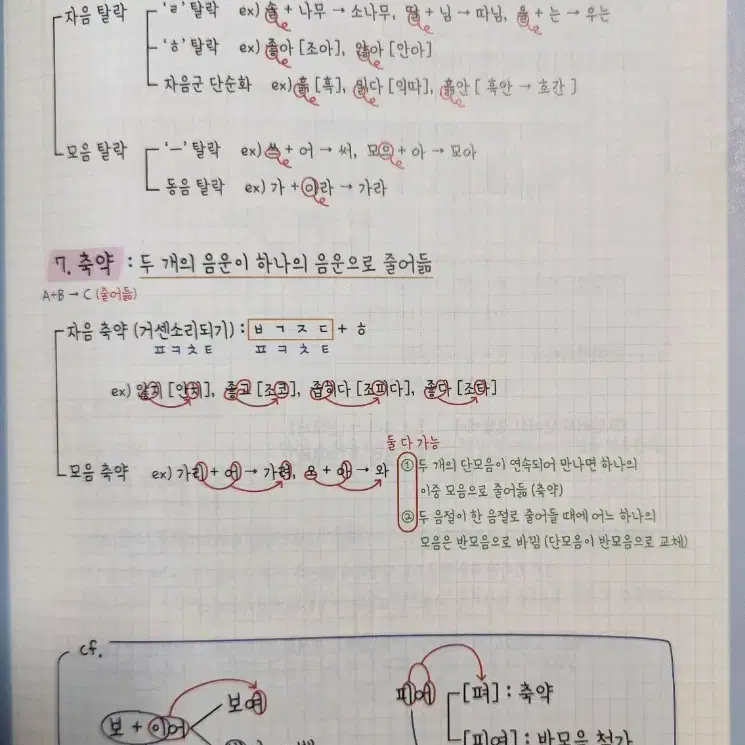 자음 탈락 'ㄹ' 탈락 ex) 솔 + 나무 → 소나무, 딸 + 님 → 따님, 울 + 는 → 우는
'ㅎ' 탈락 ex) 좋아 [조아], 않아 [안아]
자음군 단순화 ex) 흙 [흑], 읽다 [익따], 흙안 [ 흑안 → 흐간 ]
모음 탈락 'ㅡ' 탈락 ex) 쓰 + 어 → 써, 모으 + 아 → 모아
동음 탈락 ex) 가 + 아라 → 가라
7. 축약 : 두 개의 음운이 하나의 음운으로 줄어듦
A+B → C (줄어듦)
자음 축약 (거센소리되기) : ㅂ ㄱ ㅈ ㄷ + ㅎ
ㅍ ㅋ ㅊ ㅌ ㅍ ㅋ ㅊ ㅌ
ex) [안치], 좋고 [조코], 좁히다 [조피다], 좋다 [조타]
둘 다 가능
모음 축약 ex) 가리 + 어 → 가려, 오 + 아 → 와
① 두 개의 단모음이 연속되어 만나면 하나의
이중 모음으로 줄어듦 (축약)
② 두 음절이 한 음절로 줄어들 때에 어느 하나의
모음은 반모음으로 바뀜 (단모음이 반모음으로 교체)
cf.
보 + 이어 보여
피어 [펴] : 축약
[피여] : 반모음 첨가